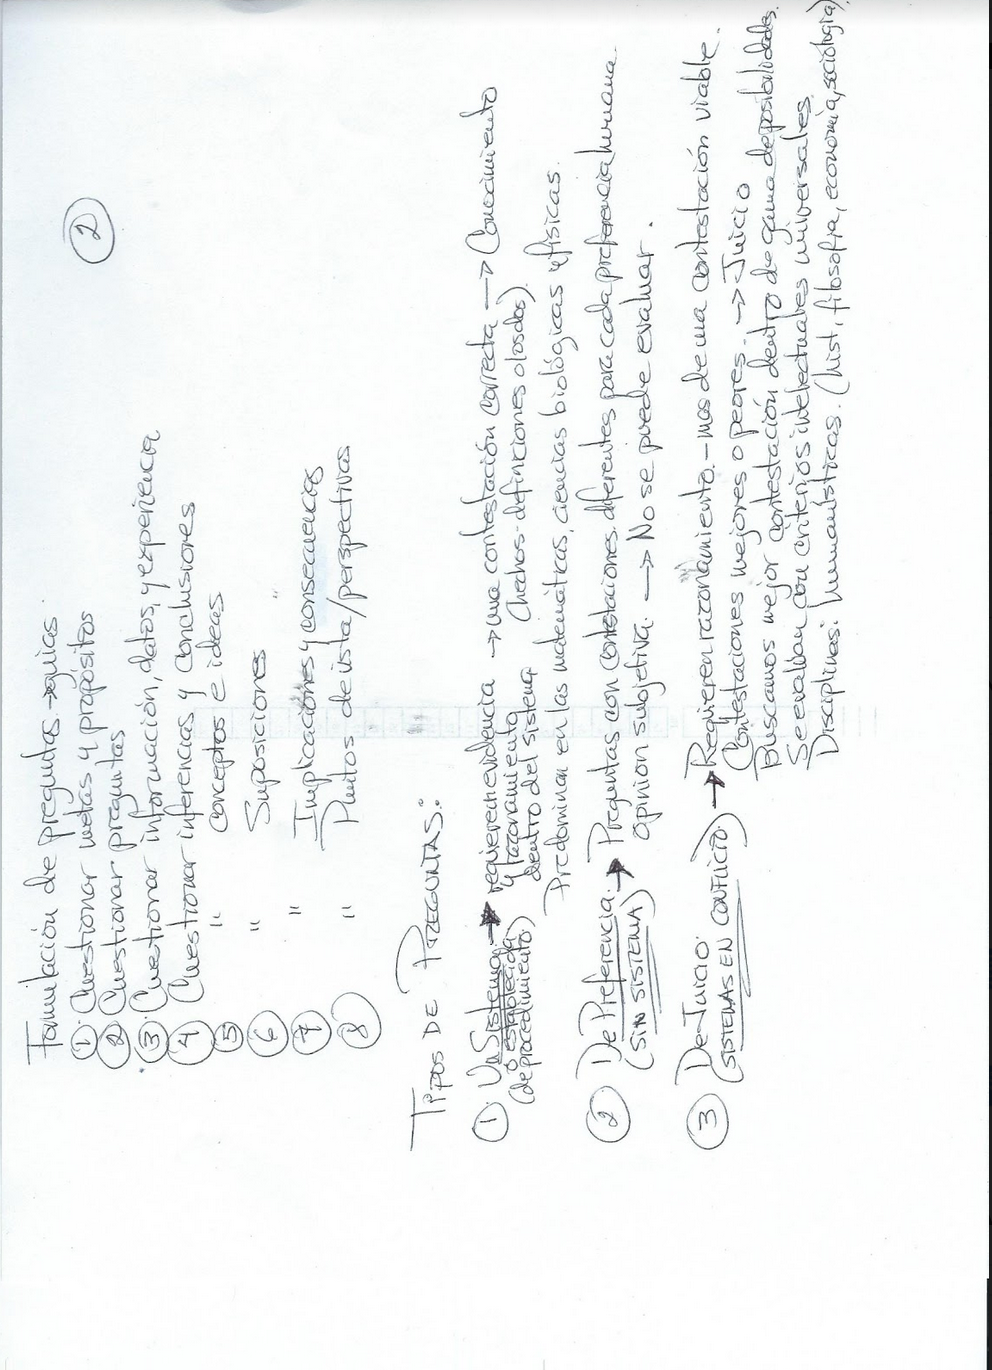 2
Formulación de preguntas → guías
① Cuestionar metas y propósitos
② Cuestionar preguntas
③ Cuestionar información, datos, y experiencia
④ Cuestionar inferencias y conclusiones
⑤ " conceptos e ideas
⑥ " Suposiciones
⑦ " Implicaciones y consecuencias
⑧ " Puntos de vista/perspectivas
TIPOS DE PREGUNTAS:
① Un Sistema → requieren evidencia → una contestación correcta → Conocimiento
o establecida y razonamiento (hechos-definiciones o los dos).
(de procedimiento) dentro del sistema
Predominan en las matemáticas, ciencias biológicas y físicas.
② De Preferencia. → Preguntas con contestaciones diferentes para cada preferencia humana
(SIN SISTEMA) opinión subjetiva. → No se puede evaluar.
③ De Juicio. → Requieren razonamiento. - mas de una contestación viable.
(SISTEMAS EN CONFLICTO) Contestaciones mejores o peores. → Juicio
Buscamos mejor contestación dentro de gama de posibilidades.
Se evalúan con criterios intelectuales universales
Disciplinas: humanísticas. (hist, filosofía, economía, sociología)